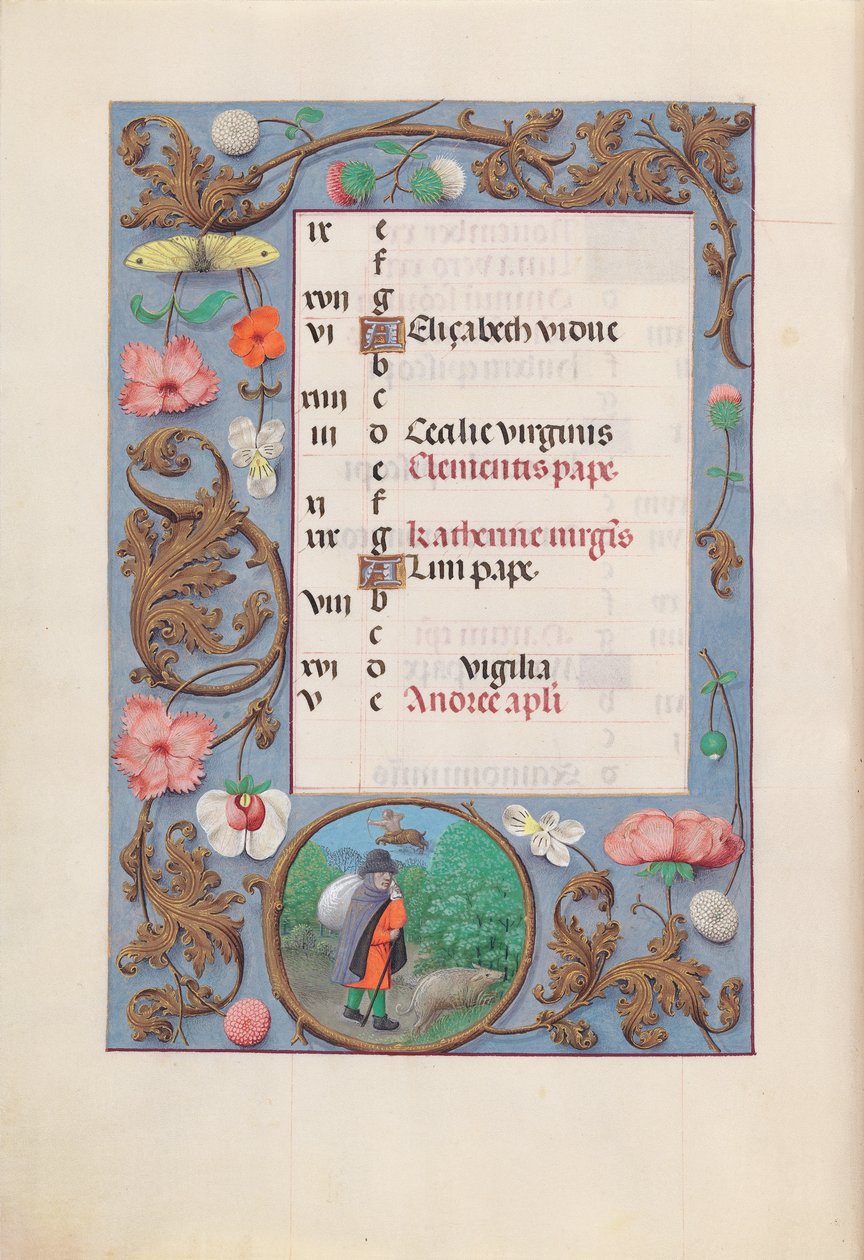 ix e
f
xvii g
vi A Elizabeth vidue
b
xiiii c
iii d Cecilie virginis
e Clementis pape
xi f
xix g Katherine virgīs
A Lini pape
viii b
c
xvi d vigilia
v e Andree apli